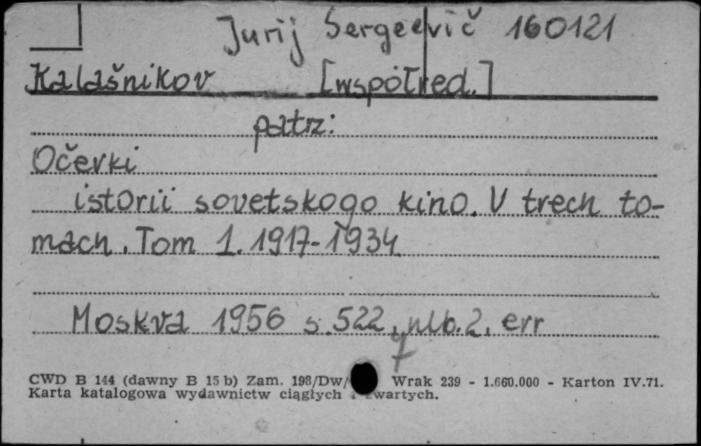 Jurij Sergeevič 160121
Kalašnikov [współred.]
patrz:
Očerki
istorii sovetskogo kino. V trech to-
mach. Tom 1. 1917-1934
Moskva 1956 s. 522, nlb. 2, err
7
CWD B 144 (dawny B 15 b) Zam. 198/Dw/ Wrak 239 - 1.660.000 - Karton IV.71.
Karta katalogowa wydawnictw ciągłych i zwartych.